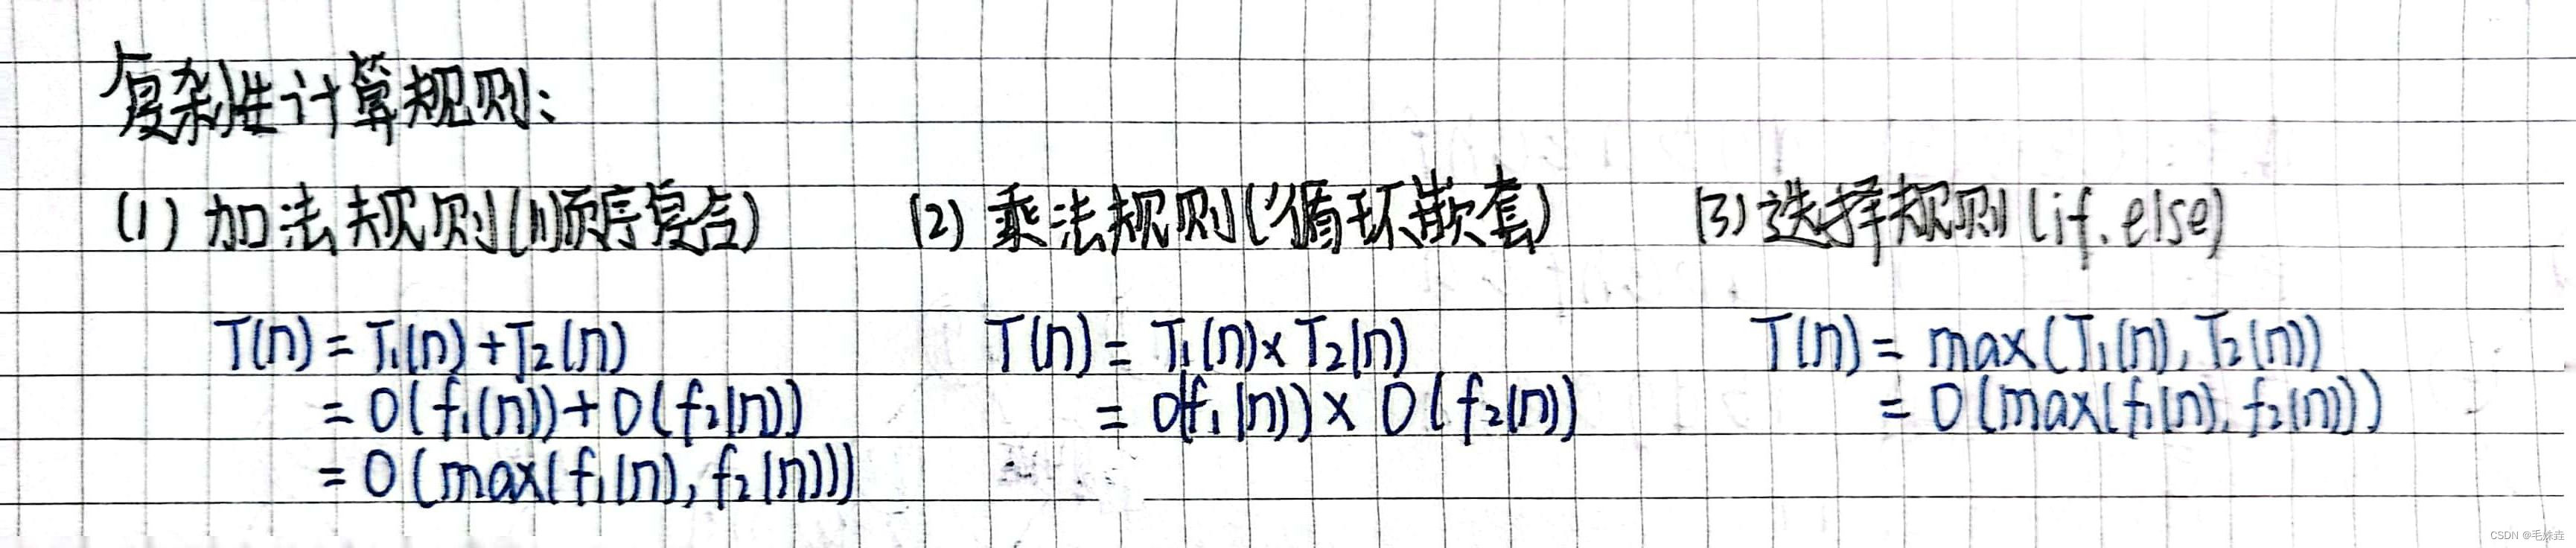 复杂性计算规则:
(1) 加法规则(顺序复合)
T(n) = T₁(n)+T₂(n)
= O(f₁(n))+O(f₂(n))
= O(max(f₁(n),f₂(n)))
(2) 乘法规则(循环嵌套)
T(n) = T₁(n)×T₂(n)
= O(f₁(n))×O(f₂(n))
(3) 选择规则(if.else)
T(n) = max(T₁(n),T₂(n))
= O(max(f₁(n),f₂(n)))
CSDN @毛